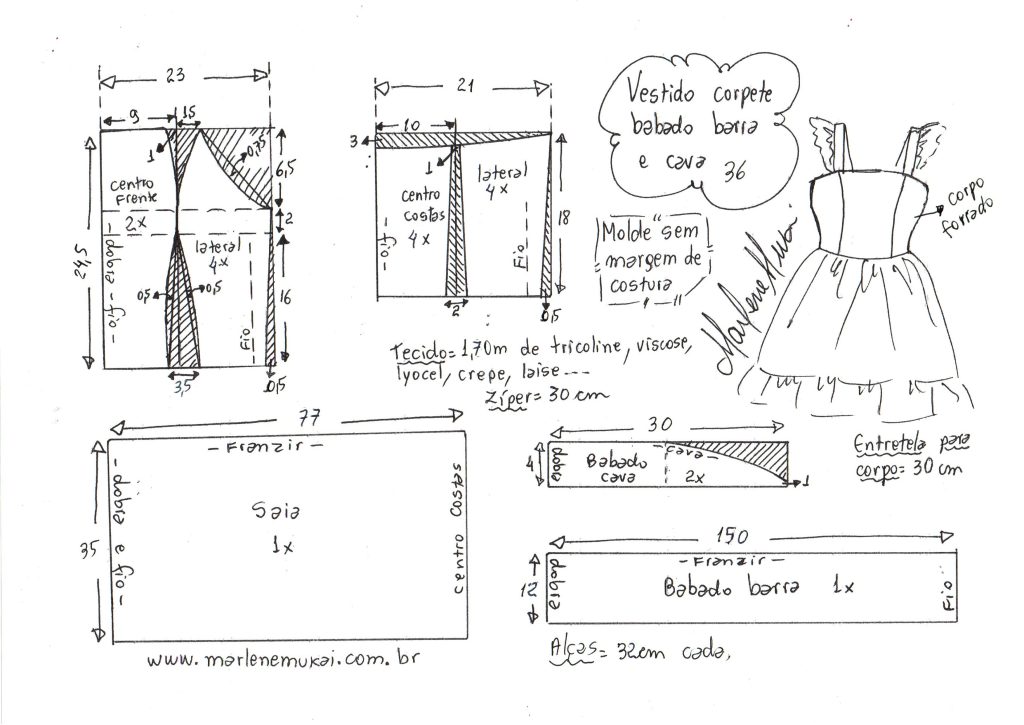 23
9
1,5
1
0,75
6,5
centro
Frente
2x
2
24,5
- dobra - fio -
lateral
4x
0,5
0,5
16
Fio
3,5
0,5
21
10
3
1
lateral
4x
centro
costas
4x
-fio-
Fio
18
2
0,5
Vestido corpete
babado barra
e cava 36
Molde sem
margem de
costura
Marlene Mukai
corpo
forrado
Tecido= 1,70m de tricoline, viscose,
lyocel, crepe, laise ---
Zíper= 30 cm
77
- Franzir -
- dobra e fio -
Saia
1x
centro costas
35
30
4
dobra
Babado
cava
- cava -
2x
1
Entretela para
corpo= 30 cm
150
- Franzir -
12
dobra
Babado barra 1x
Fio
Alças= 32cm cada,
www.marlenemukai.com.br